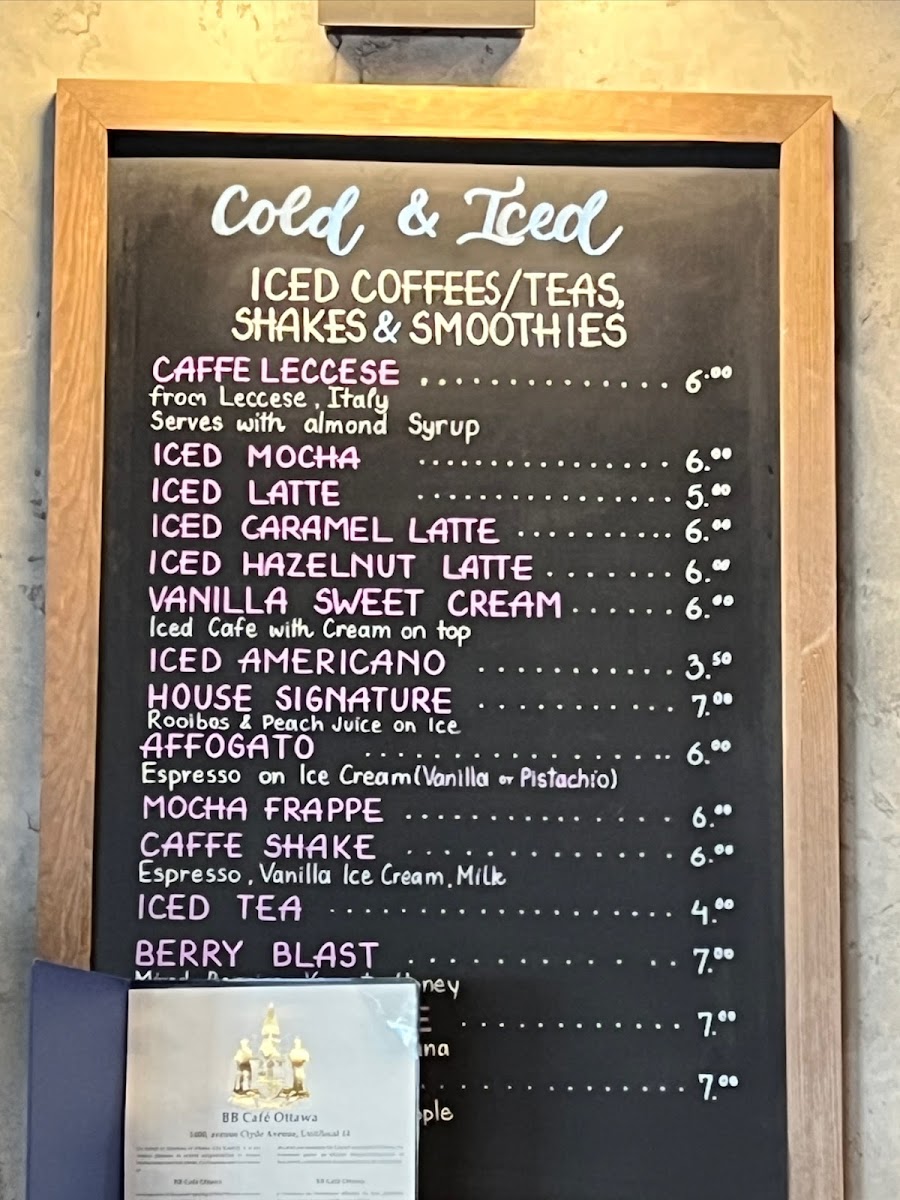 Cold & Iced
ICED COFFEES/TEAS,
SHAKES & SMOOTHIES
CAFFE LECCESE .............. 6.00
from Leccese, Italy
Serves with almond Syrup
ICED MOCHA ................ 6.00
ICED LATTE ................ 5.00
ICED CARAMEL LATTE .......... 6.00
ICED HAZELNUT LATTE ....... 6.00
VANILLA SWEET CREAM ...... 6.00
Iced Cafe with Cream on top
ICED AMERICANO ........... 3.50
HOUSE SIGNATURE ........... 7.00
Rooibos & Peach Juice on Ice
AFFOGATO ................ 6.00
Espresso on Ice Cream (Vanilla or Pistachio)
MOCHA FRAPPE .............. 6.00
CAFFE SHAKE ............. 6.00
Espresso, Vanilla Ice Cream, Milk
ICED TEA ................... 4.00
BERRY BLAST ............. 7.00
ney
E ............ 7.00
ana
............... 7.00
pple
BB Café Ottawa
BB Café Ottawa BB Café Ottawa